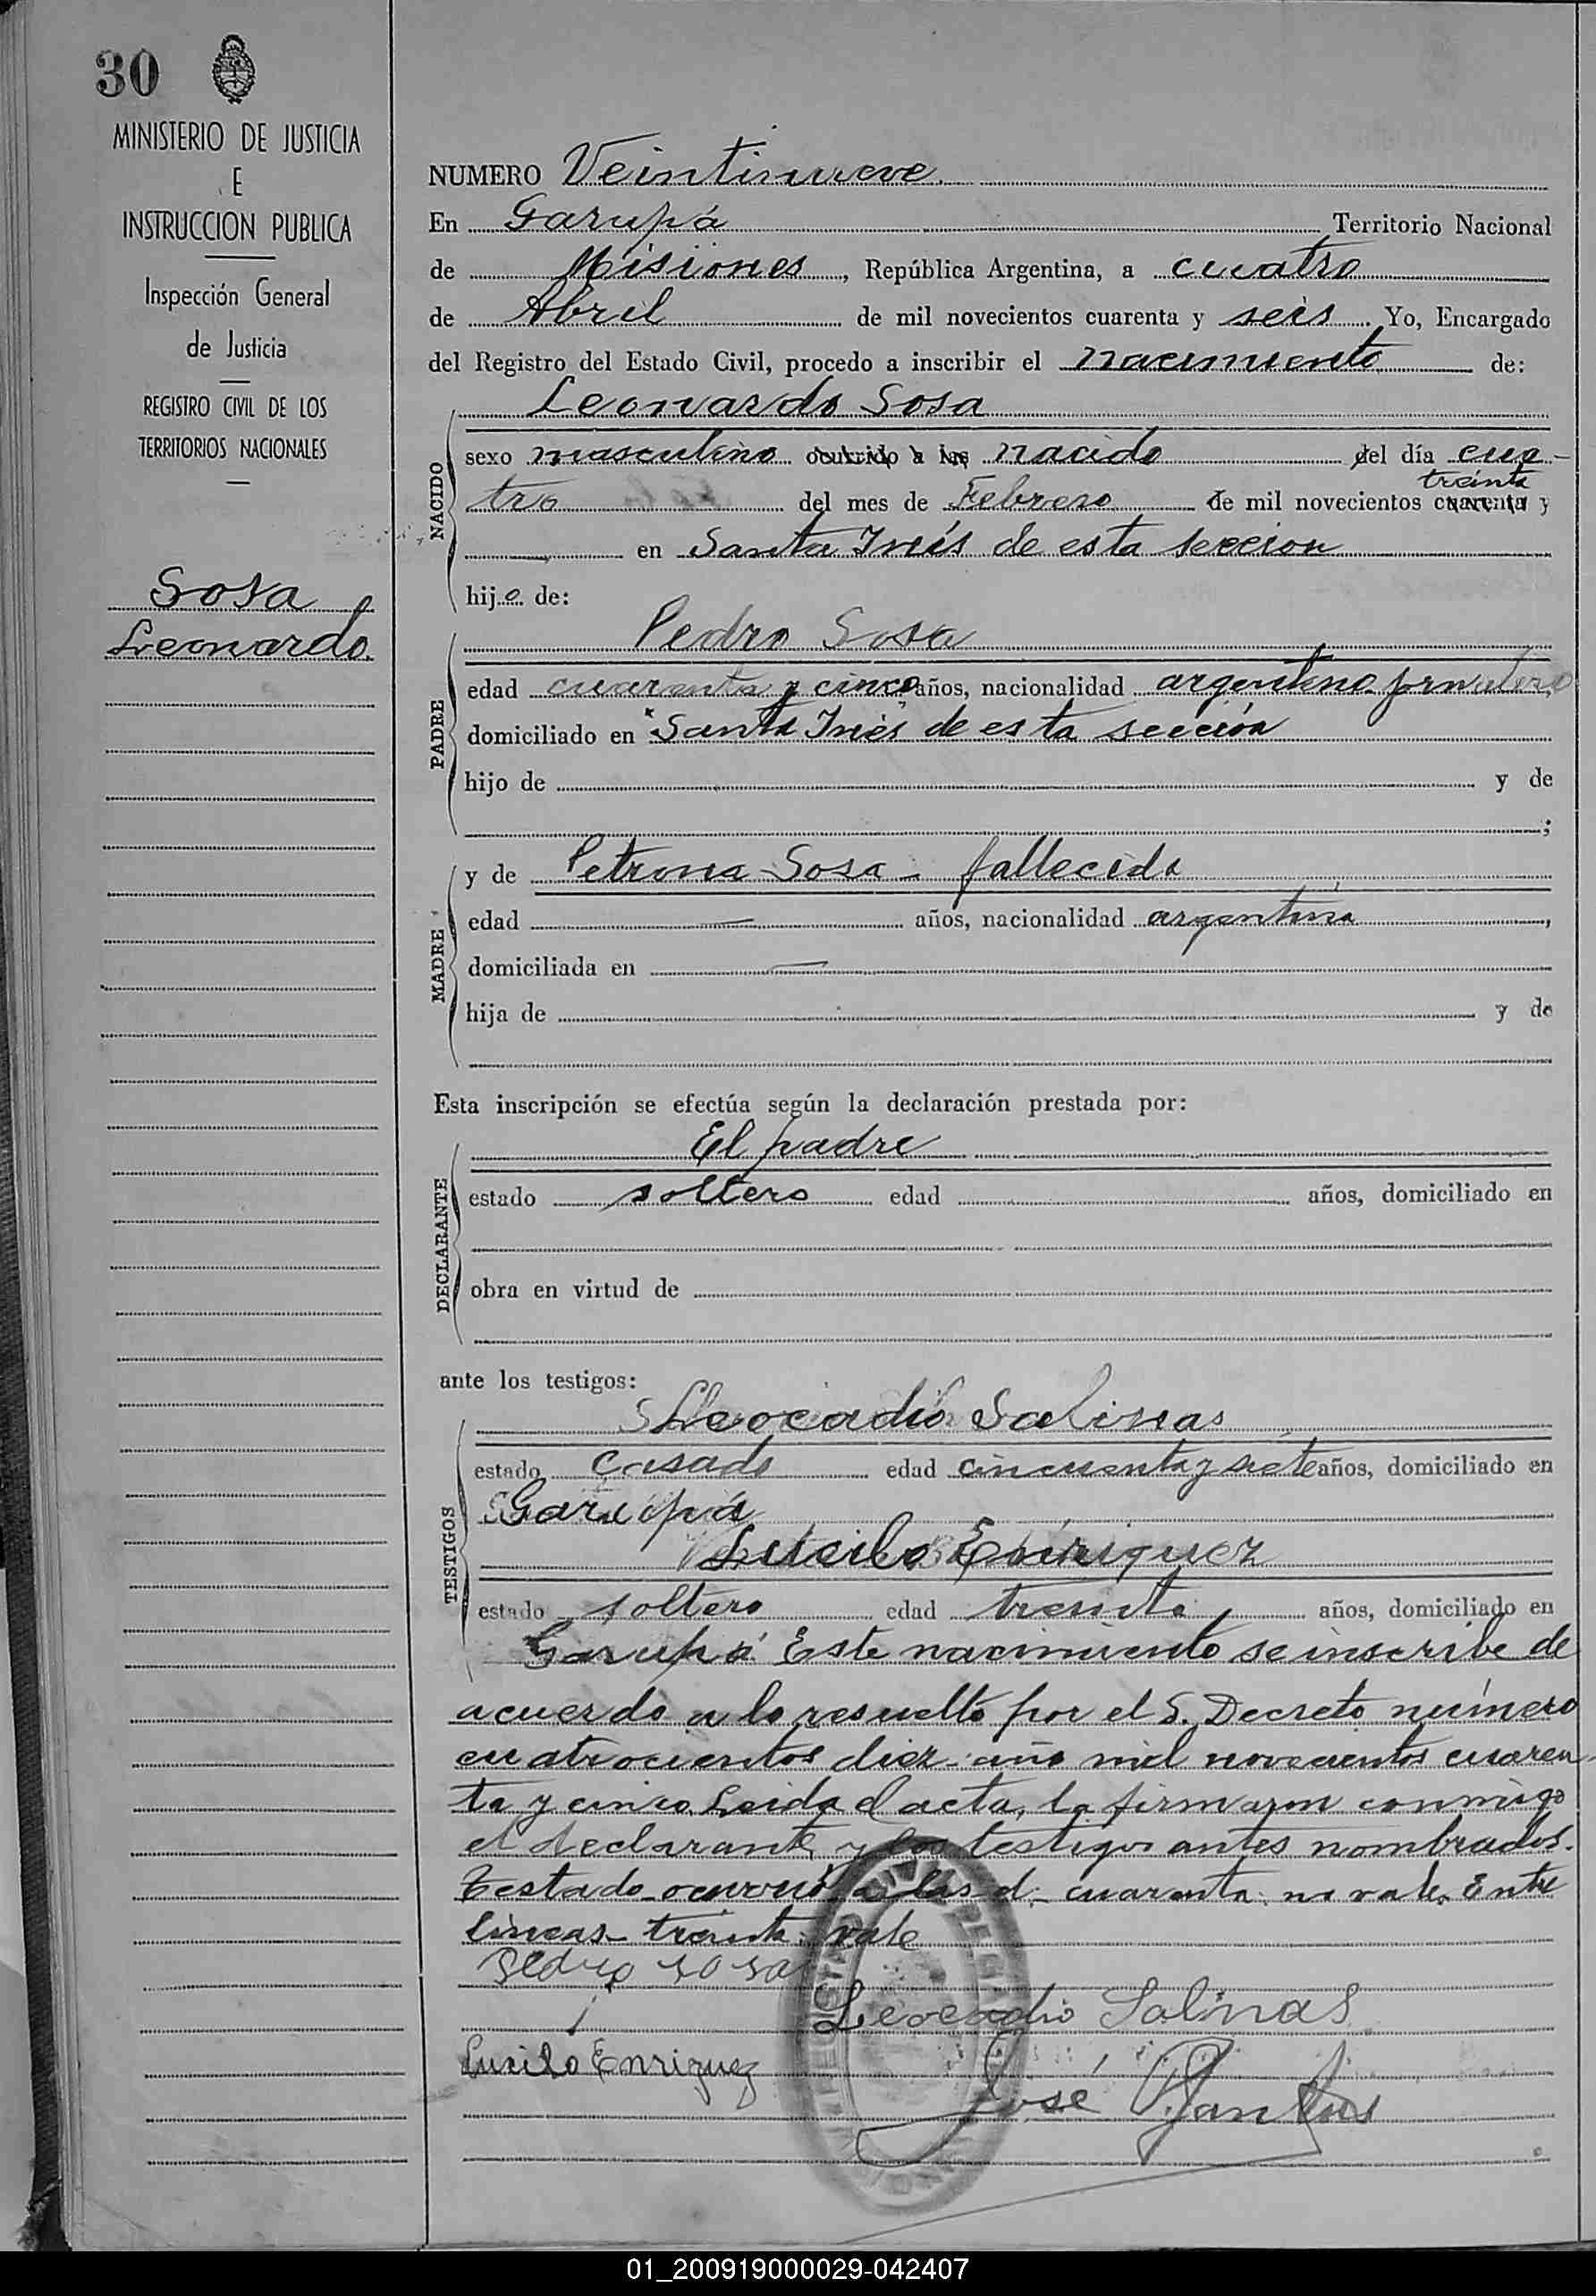 30
MINISTERIO DE JUSTICIA
E
INSTRUCCION PUBLICA
Inspección General
de Justicia
REGISTRO CIVIL DE LOS
TERRITORIOS NACIONALES
Sosa
Leonardo
NUMERO Veintinueve
En Garupá Territorio Nacional
de Misiones, República Argentina, a cuatro
de Abril de mil novecientos cuarenta y seis. Yo, Encargado
del Registro del Estado Civil, procedo a inscribir el nacimiento de:
Leonardo Sosa
NACIDO
sexo masculino ocurrido a las nacido del día cua-
treinta
tro del mes de Febrero de mil novecientos cuarenta y
en Santa Inés de esta seccion
hijo de:
Pedro Sosa
PADRE
edad cuarenta y cinco años, nacionalidad argentino jornalero
domiciliado en Santa Inés de esta sección
hijo de y de
;
y de Petrona Sosa - fallecida
MADRE
edad — años, nacionalidad argentina,
domiciliada en —
hija de y de
Esta inscripción se efectúa según la declaración prestada por:
El padre
DECLARANTE
estado soltero edad años, domiciliado en
obra en virtud de
ante los testigos:
Leocadio Salinas
TESTIGOS
estado casado edad cincuenta y siete años, domiciliado en
Garupá
Lucilo Enriquez
estado soltero edad treinta años, domiciliado en
Garupá Este nacimiento se inscribe de
acuerdo a lo resuelto por el S. Decreto número
cuatrocientos diez año mil novecientos cuaren-
ta y cinco. Leida el acta, la firmaron conmigo
el declarante y los testigos antes nombrados.
Testado ocurrido a las d. cuarenta: no vale. Entre
lineas treinta: vale
Pedro Sosa
Leocadio Salinas
Lucilo Enriquez
José
01_200919000029-042407